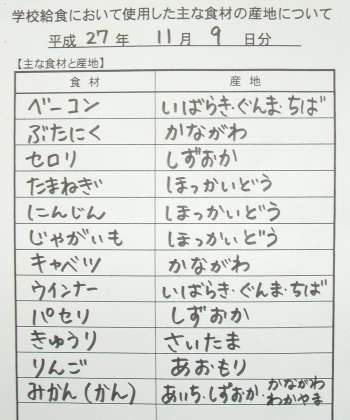 学校給食において使用した主な食材の産地について
平成 27 年 11 月 9 日分
【主な食材と産地】
食材 産地
ベーコン いばらき・ぐんま・ちば
ぶたにく かながわ
セロリ しずおか
たまねぎ ほっかいどう
にんじん ほっかいどう
じゃがいも ほっかいどう
キャベツ かながわ
ウインナー いばらき・ぐんま・ちば
パセリ しずおか
きゅうり さいたま
りんご あおもり
みかん(かん) あいち・しずおか・かながわ
わかやま